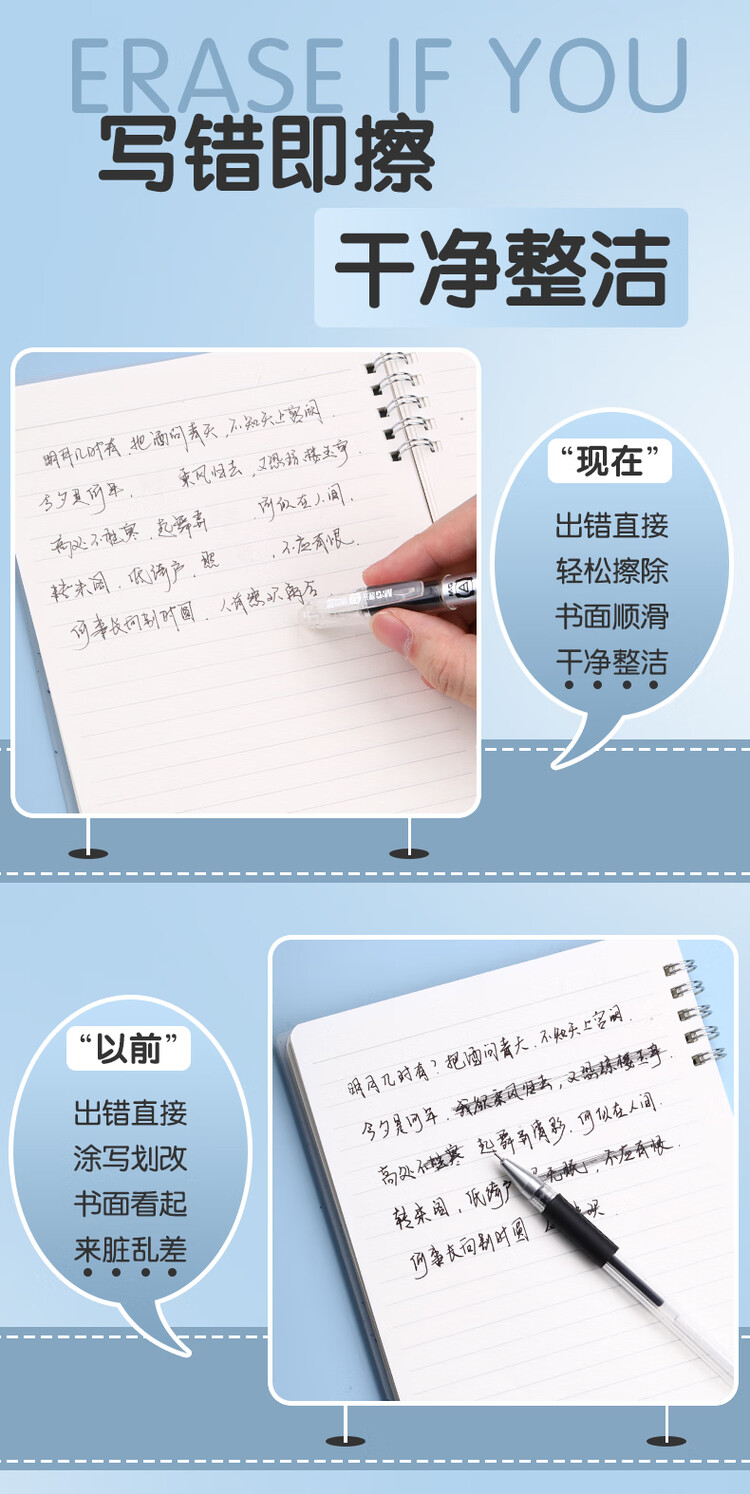 ERASE IF YOU
写错即擦
干净整洁
明月几时有 把酒问青天,不知天上宫阙.
今夕是何年, 乘风归去,又恐琼楼玉宇.
高处不胜寒,起舞弄 .何似在人间.
转朱阁,低绮户,照 ,不应有恨.
何事长向别时圆.人有悲欢离合
M&G
“现在”
出错直接
轻松擦除
书面顺滑
干净整洁
“以前”
出错直接
涂写划改
书面看起
来脏乱差
明月几时有?把酒问青天,不知天上宫阙.
今夕是何年,我欲乘风归去,又恐琼楼玉宇.
高处不胜寒 起舞弄清影.何似在人间.
转朱阁,低绮户 无眠,不应有恨.
何事长向别时圆